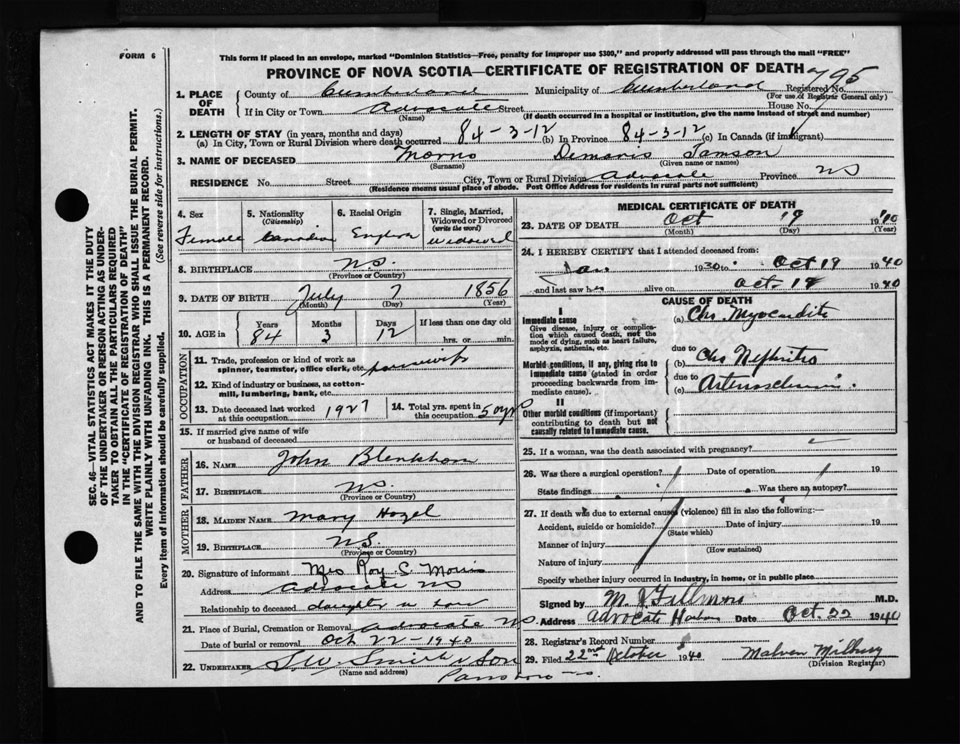 FORM 6
This form if placed in an envelope, marked "Dominion Statistics—Free, penalty for improper use $300," and properly addressed will pass through the mail "FREE"
PROVINCE OF NOVA SCOTIA—CERTIFICATE OF REGISTRATION OF DEATH
795
1. PLACE OF DEATH
County of Cumberland Municipality of Cumberland Registered No.
(For use of Registrar General only)
If in City or Town Advocate Street House No.
(Name) (If death occurred in a hospital or institution, give the name instead of street and number)
2. LENGTH OF STAY (in years, months and days)
(a) In City, Town or Rural Division where death occurred 84-3-12 (b) In Province 84-3-12 (c) In Canada (if immigrant)
3. NAME OF DECEASED Demaris Jamson
(Surname) (Given name or names)
RESIDENCE No. Street City, Town or Rural Division Advocate Province NS
(Residence means usual place of abode. Post Office Address for residents in rural parts not sufficient)
4. Sex Female
5. Nationality (Citizenship) Canadian
6. Racial Origin
7. Single, Married, Widowed or Divorced (write the word) widowed
8. BIRTHPLACE N.S.
(Province or Country)
9. DATE OF BIRTH July 7 1856
(Month) (Day) (Year)
10. AGE in Years 84 Months 3 Days 12 If less than one day old hrs. or min.
OCCUPATION
11. Trade, profession or kind of work as spinner, teamster, office clerk, etc.
12. Kind of industry or business, as cotton-mill, lumbering, bank, etc.
13. Date deceased last worked at this occupation 1927
14. Total yrs. spent in this occupation 50 yrs
15. If married give name of wife or husband of deceased
FATHER
16. NAME John Blenkhorn
17. BIRTHPLACE N.S.
(Province or Country)
MOTHER
18. MAIDEN NAME Mary Hazel
19. BIRTHPLACE N.S.
(Province or Country)
20. Signature of informant Mrs Roy S. Morris
Address Advocate NS
Relationship to deceased daughter in law
21. Place of Burial, Cremation or Removal Advocate NS.
Date of burial or removal Oct 22-1940
22. UNDERTAKER Smith & Son
(Name and address)
Parrsboro NS.
MEDICAL CERTIFICATE OF DEATH
23. DATE OF DEATH Oct 19 1940
(Month) (Day) (Year)
24. I HEREBY CERTIFY that I attended deceased from:
Jan 1930 to Oct 19 1940
and last saw her alive on Oct. 18 1940
CAUSE OF DEATH
I
Immediate cause
Give disease, injury or complication which caused death, not the mode of dying, such as heart failure, asphyxia, asthenia, etc.
(a) Chr Myocarditis
due to
Morbid conditions, if any, giving rise to immediate cause (stated in order proceeding backwards from immediate cause).
(b) Chr Nephritis
due to
(c) Arteriosclerosis.
II
Other morbid conditions (if important) contributing to death but not causally related to immediate cause.
25. If a woman, was the death associated with pregnancy?
26. Was there a surgical operation? Date of operation 19
State findings Was there an autopsy?
27. If death was due to external causes (violence) fill in also the following:—
Accident, suicide or homicide? Date of injury 19
(State which)
Manner of injury
(How sustained)
Nature of injury
Specify whether injury occurred in industry, in home, or in public place.
Signed by M. J. Fillmore M.D.
Address Advocate Harbor Date Oct 22 1940
28. Registrar's Record Number 8
29. Filed 22nd October 1940
(Division Registrar)
SEC. 46—VITAL STATISTICS ACT MAKES IT THE DUTY OF THE UNDERTAKER OR PERSON ACTING AS UNDERTAKER TO OBTAIN ALL THE PARTICULARS REQUIRED IN THE "CERTIFICATE OF REGISTRATION OF DEATH" AND TO FILE THE SAME WITH THE DIVISION REGISTRAR WHO SHALL ISSUE THE BURIAL PERMIT.
WRITE PLAINLY WITH UNFADING INK. THIS IS A PERMANENT RECORD.
Every item of information should be carefully supplied. (See reverse side for instructions.)